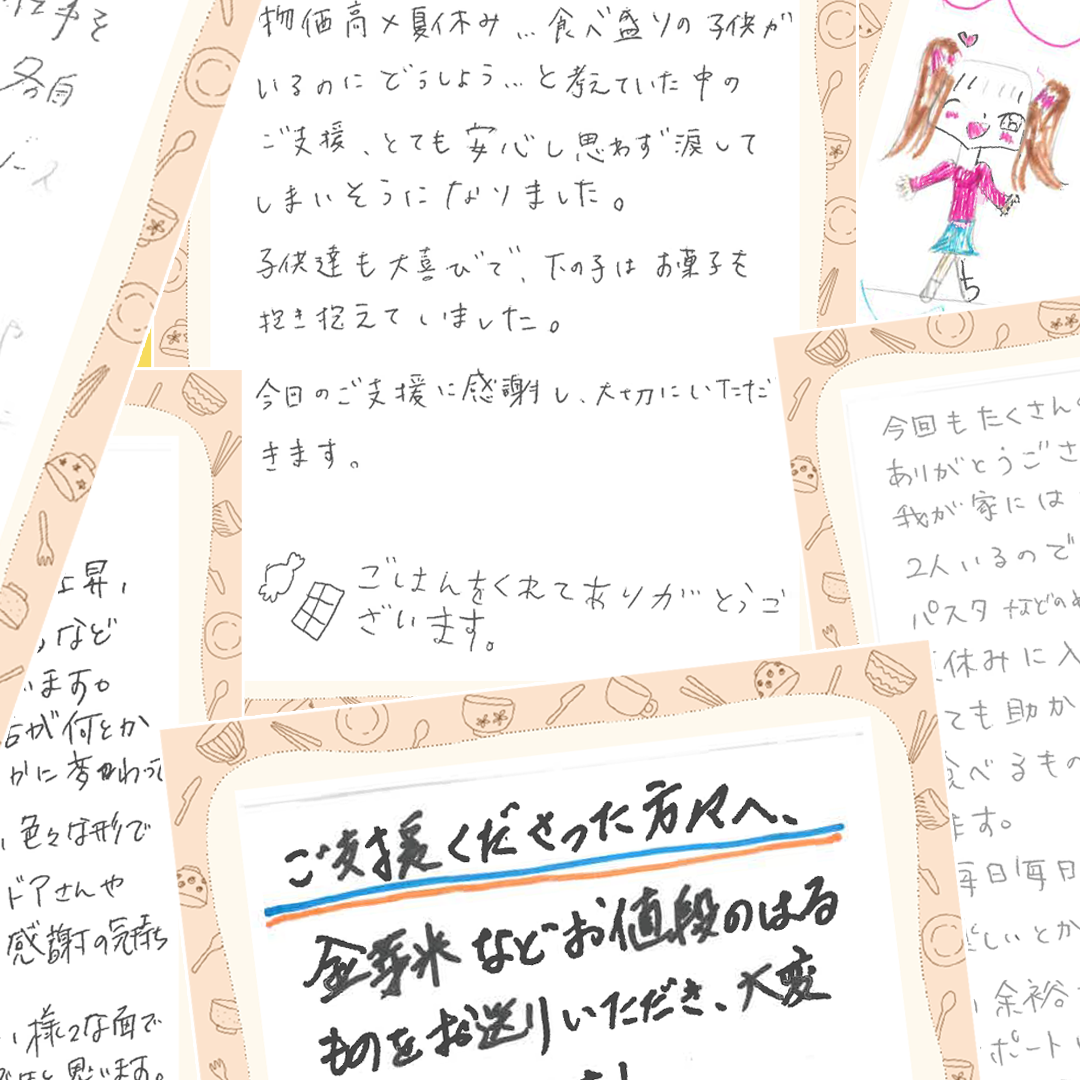 物価高×夏休み…食べ盛りの子供が
いるのにどうしよう…と考えていた中の
ご支援、とても安心し思わず涙して
しまいそうになりました。
子供達も大喜びで、下の子はお菓子を
抱き抱えていました。
今日のご支援に感謝し、大切にいただ
きます。
ごはんをくれてありがとうご
ざいます。
各自
上昇，
など
います。
が何とか
かに変わって
色々な形で
ドアさんや
感謝の気持ち
様々な面で
と思います。
今回もたくさん
ありがとうござ
我が家には
2人いるので
パスタなどの
休みに入
ても助か
食べるもの
ます。
毎日毎日
しいとか
余裕
ポート
ご支援くださった方々へ、
金芽米などお値段のはる
ものをお送りいただき、大変